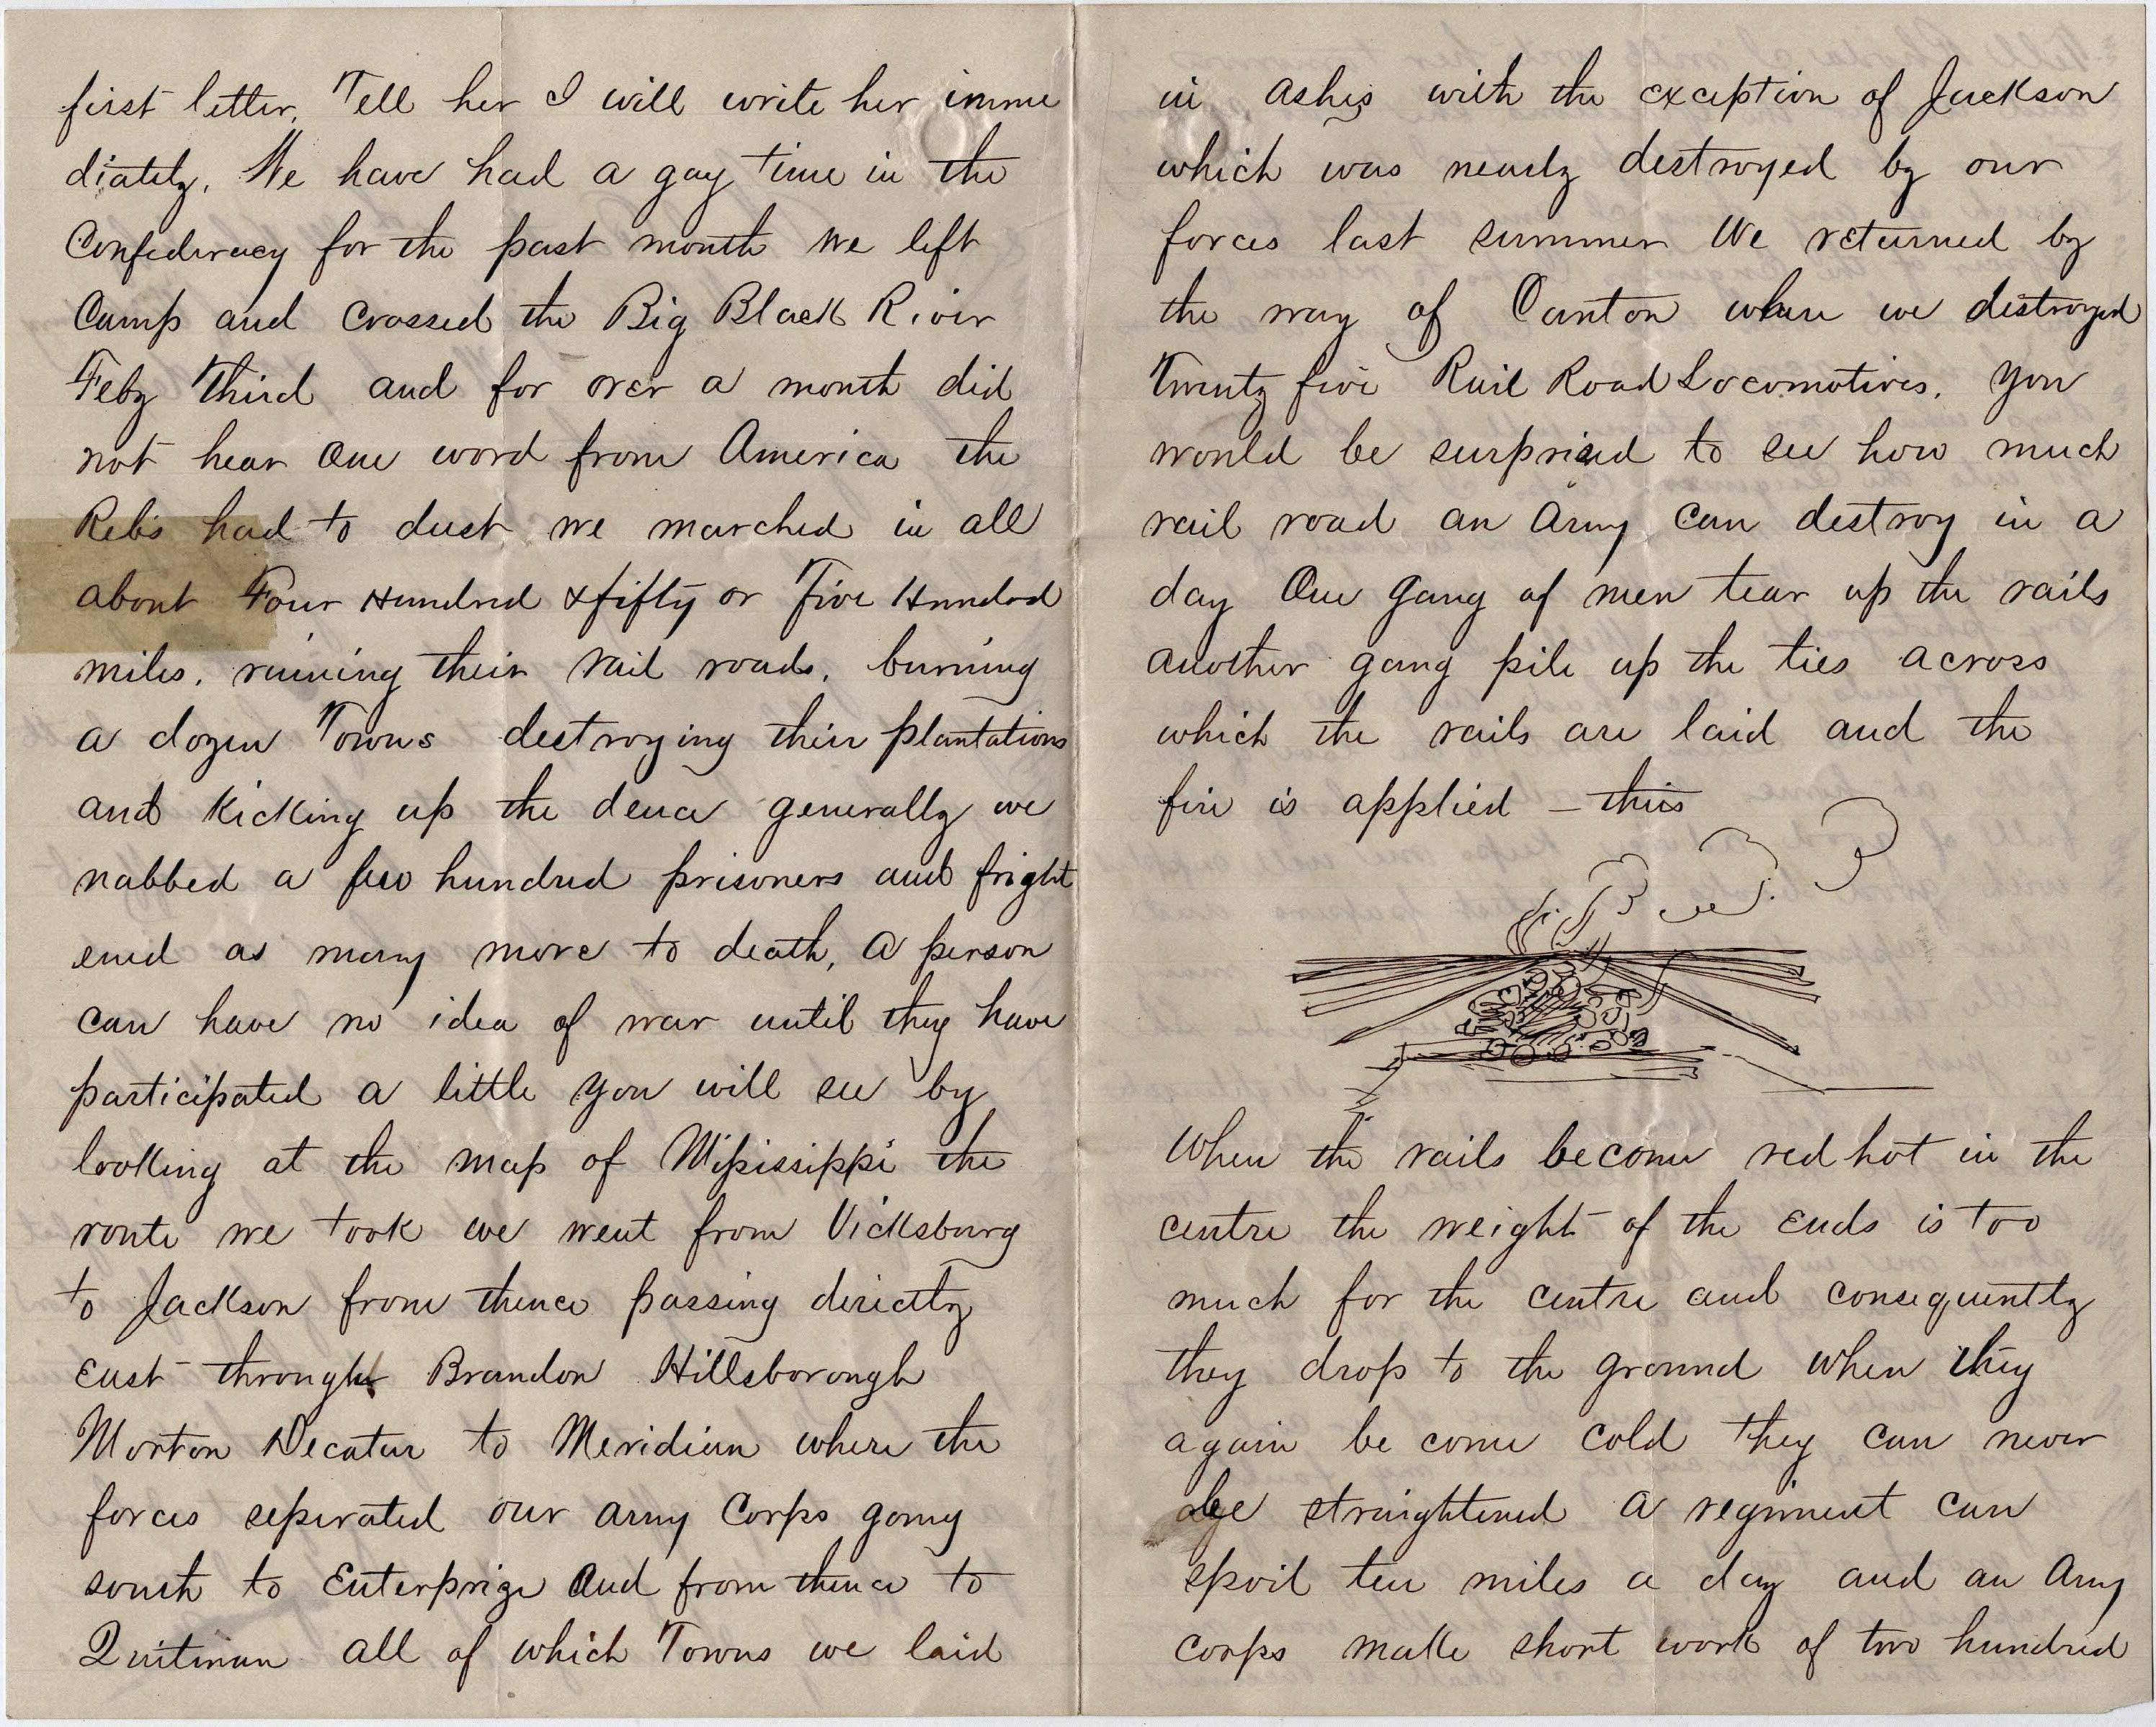 first letter. Tell her I will write her imme
diately. We have had a gay time in the
Confederacy for the past month We left
Camp and crossed the Big Black River
Feby Third and for over a month did
not hear one word from America the
Rebs had to dust we marched in all
about Four Hundred & fifty or Five Hundred
miles, ruining their rail roads, burning
a dozen Towns destroying their plantations
and Kicking up the deuce generally we
nabbed a few hundred prisoners and fright
ened as many more to death, A person
can have no idea of war until they have
participated a little you will see by
looking at the map of Missisippi the
route we took we went from Vicksburg
to Jackson from thence passing directly
east through Brandon Hillsborough
Morton Decatur to Meridian where the
forces seperated our army Corps going
south to Enterprize And from thence to
Quitman all of which Towns we laid
in ashes with the exception of Jackson
which was nearly destroyed by our
forces last summer We returned by
the way of Canton where we destroyed
Twenty five Rail Road Locomotives. You
would be surprised to see how much
rail road an Army can destroy in a
day One gang of men tear up the rails
another gang pile up the ties across
which the rails are laid and the
fire is applied – this
When the rails become red hot in the
centre the weight of the ends is too
much for the centre and consequently
they drop to the ground when they
again be come cold they can never
be straightened A regiment can
spoil ten miles a day and an Army
corps make short work of two hundred